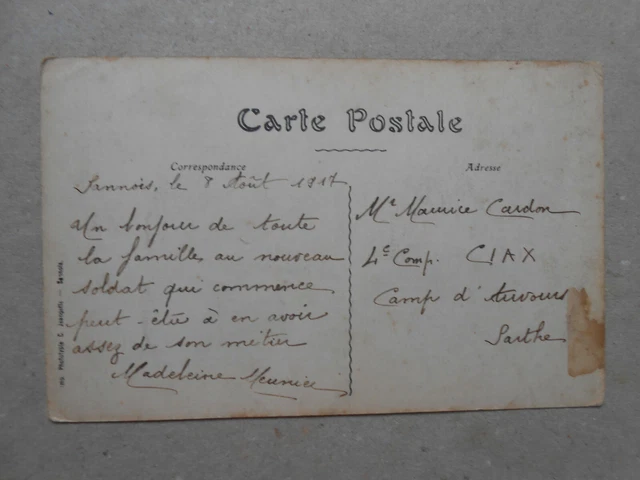 Carte Postale
Correspondance
Adresse
Sannois, le 8 Août 1917
Un bonjour de toute
la famille au nouveau
soldat qui commence
peut-être à en avoir
assez de son métier
Madeleine Meunier
Mr Maurice Cardon
4e Comp. CIAX
Camp d'Auvours
Sarthe
Imp. Phototypie